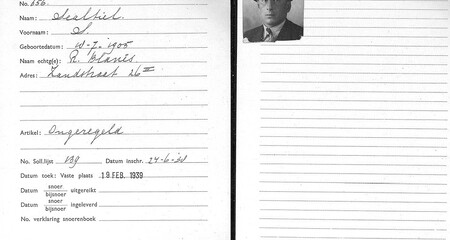 No. 656.
Naam: Sealtiel
Voornaam: S.
Geboortedatum: 10-7-1905
Naam echtg(e): R. Blanes
Adres: Zandstraat 26
Artikel: Ongeregeld
No. Soll.lijst 139 Datum inschr. 24-6-38
Datum toek: Vaste plaats 19 FEB. 1939
Datum snoer bijsnoer uitgereikt
Datum snoer bijsnoer ingeleverd
No. verklaring snoerenboek